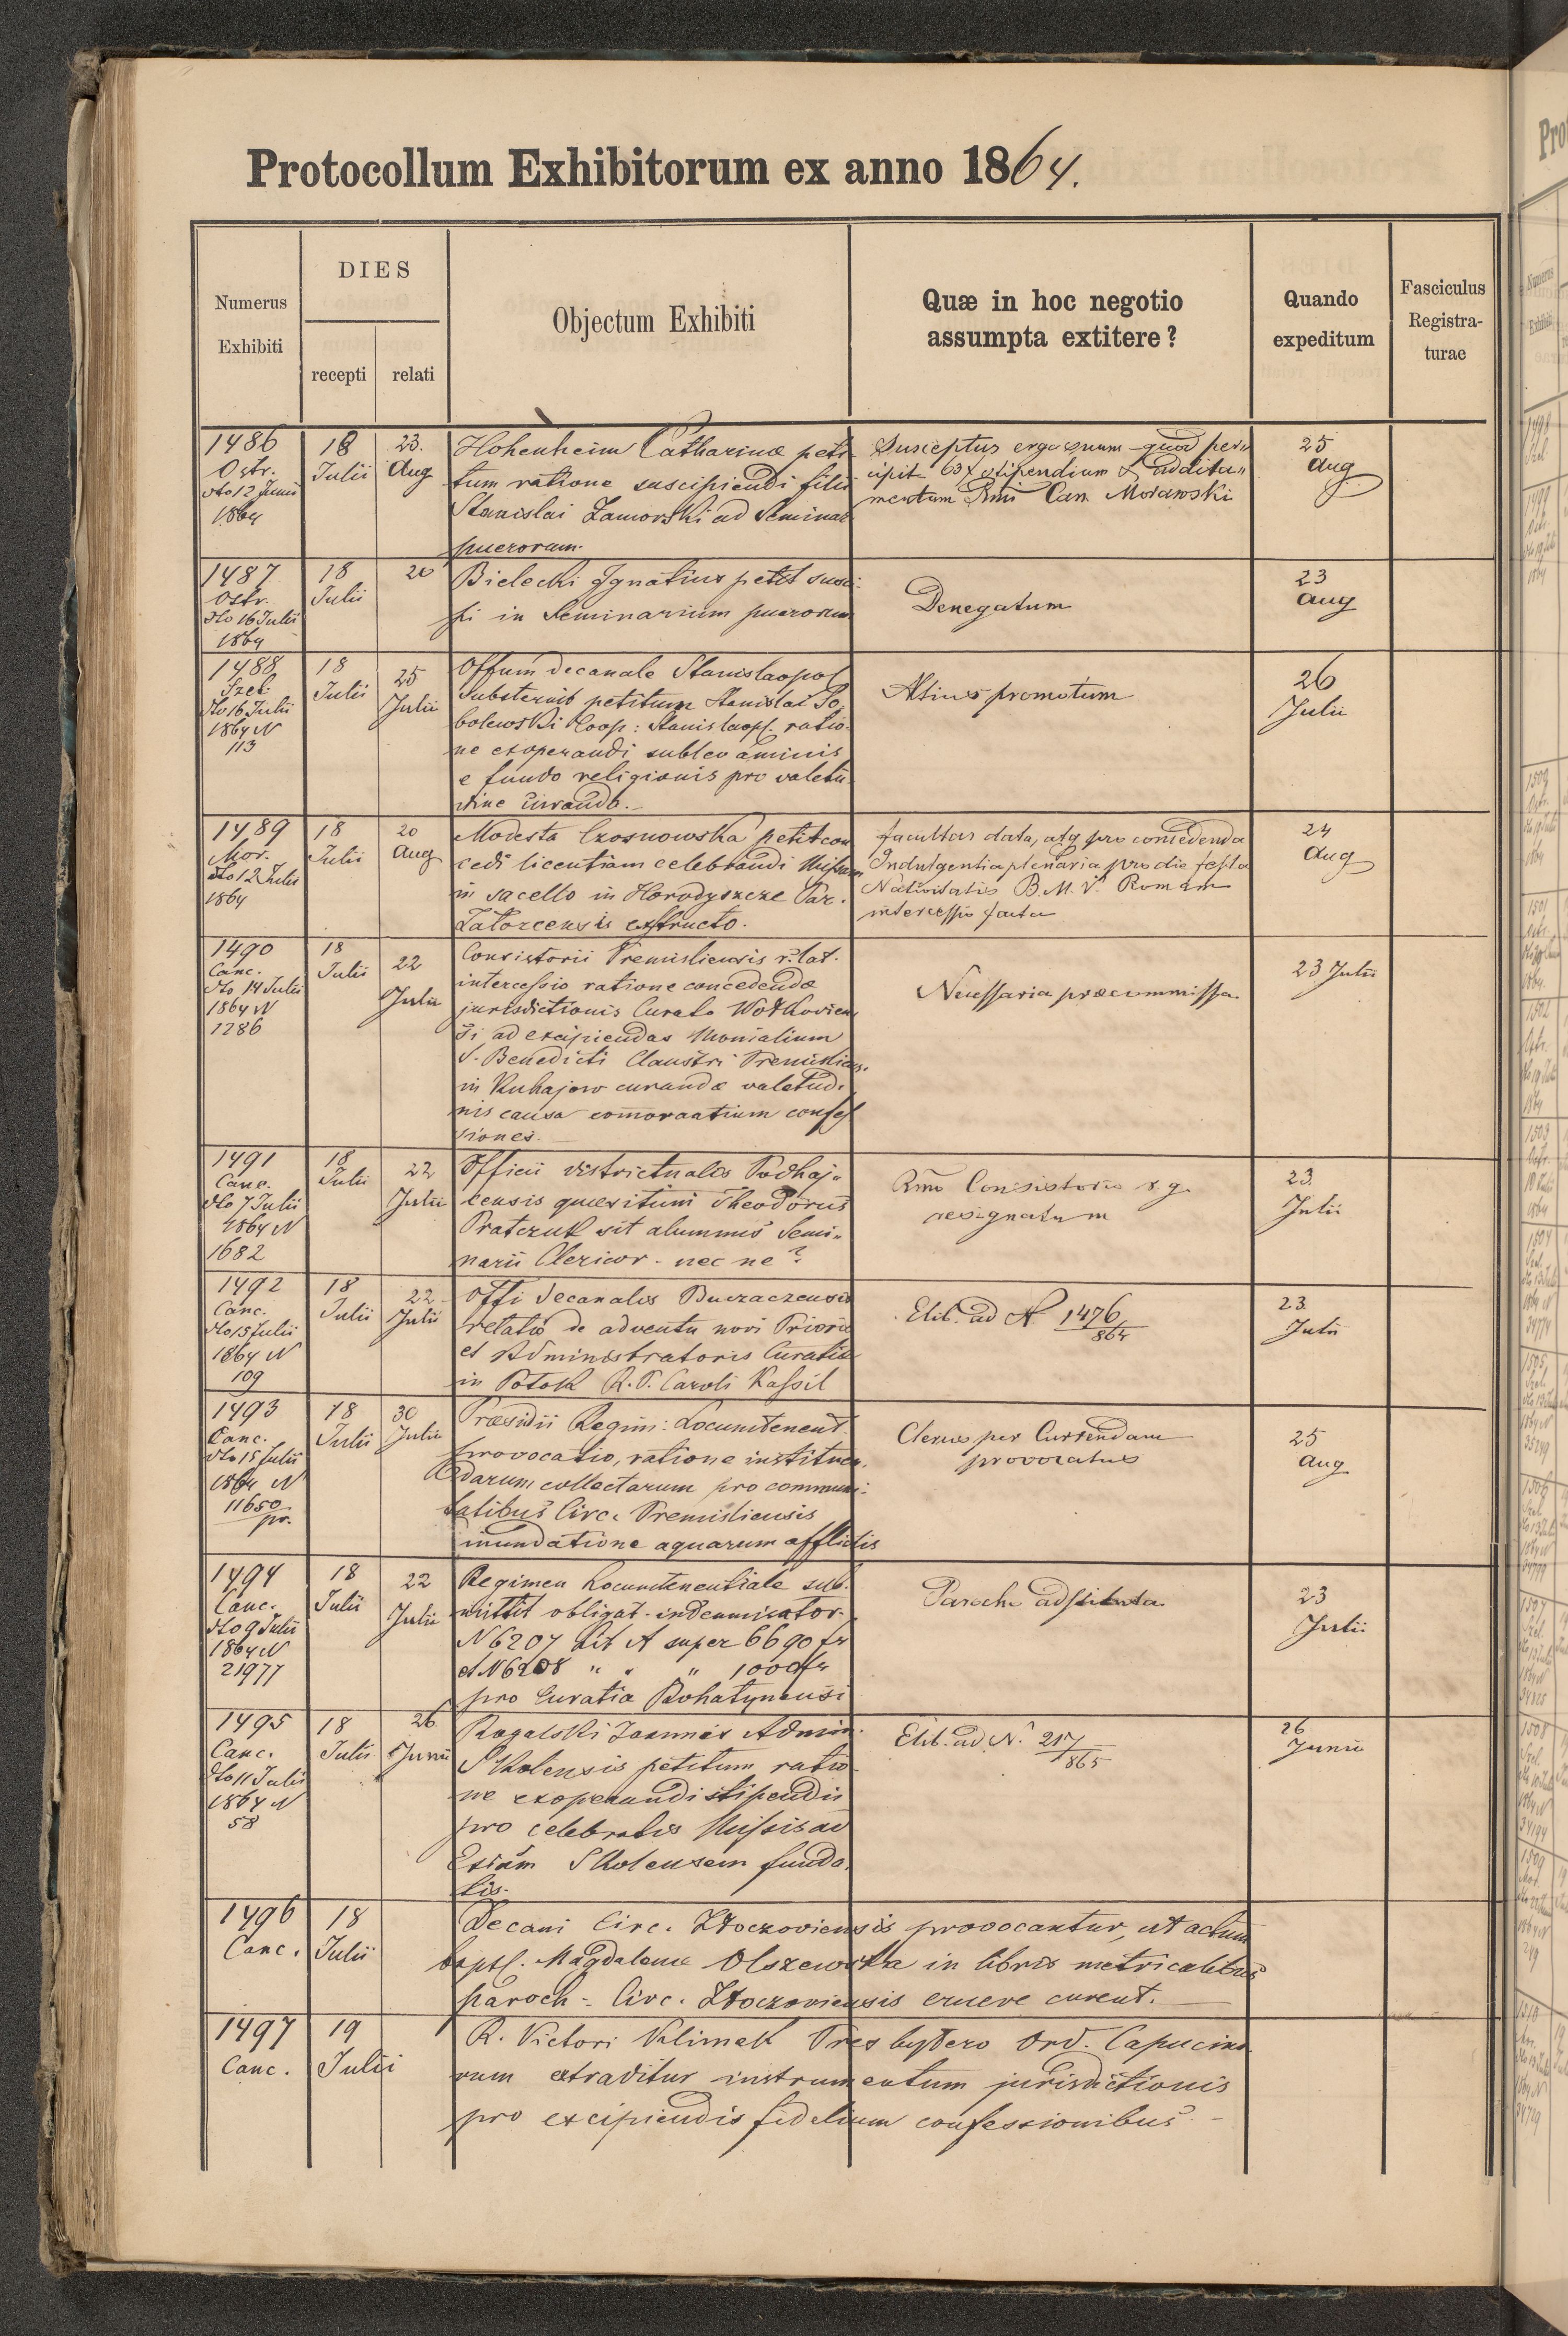 Protocollum Exhibitorum ex anno 1864.
Numerus
Exhibiti
DIES
recepti
relati
Objectum Exhibiti
Quæ in hoc negotio
assumpta extitere?
Quando
expeditum
Fasciculus
Registra-
turae
1486
Ostr.
dto 12 Junii
1864
18
Julii
23.
Aug
Hohenheim Catharinæ peti
tum ratione suscipiendi filii
Stanislai Zamorski ad Seminar
puerorum.
Susceptus erga quod per-
cipit 63 x stipendium & additu"
mentum Rmi Can Morawski
25
Aug
1487
Ostr.
dto 16 Julii
1864
18
Julii
20
Bielecki Ignatius petit susci-
pi in Seminarium puerorum
Denegatum
23
Aug
1488
Szel
dto 16 Julii
1864 N
113
18
Julii
25
Julii
Offum decanale Stanislaopol
substernit petitum Stanislai So
bolewski Coop: Stanislaopl. ratio-
ne exoperandi sublevaminis
e fundo religionis pro valetu
dine curanda.
Altius promotum
26
Julii
1489
Mor.
dto 12 Julii
1864
18
Julii
20
Aug
Modesta Czosnowska petit con
cedi licentiam celebrandi Missam
in sacello in Horodyszcze Par.
Zatorcensis exstructo.
facultas data, atq pro concedenda
Indulgentia plenaria pro die festo
Nativitatis B.M.V. Romam
intercessio facta
24
Aug
1490
Canc.
dto 14 Julii
1864 N
1286
18
Julii
22
Julii
Consistorii Premisliensis r. lat.
intercessio ratione concedendæ
jurisdictionis Curato Wołkovien
si ad excipiendas Monialium
S. Benedicti Claustri Premislien.
in Kuhajow curandæ valetudi
nis causa comorantium confes
siones.
Necessaria præcommissa
23 Julii
1491
Canc.
dto 7 Julii
1864 N
1682
18
Julii
22
Julii
Officii districtualis Podhaj-
censis quæsitum Theodorus
Pratczuk sit alumnus Semi-
narii Clericor. nec ne?
Rmo Consistorio r. g.
resignatum
23.
Julii
1492
Canc.
dto 15 Julii
1864 N
109
18
Julii
22
Julii
Offi decanalis Buczaczensis
relatio de adventu novi Prioris
et Administratoris Curatiæ
in Potok R.P. Caroli Kassil
Elib. ad N 1476
864
23
Julii
1493
Canc.
dto 15 Julii
1864 N
11650
pr.
18
Julii
30
Julii
Præsidii Regim: Locumtenent.
provocatio, ratione instituen.
darum collectarum pro communi-
tatibus Circ. Premisliensis
inundatione aquarum afflictis
Clerus per Currendam
provocatus
25
Aug
1494
Canc.
dto 9 Julii
1864 N
21977
18
Julii
22
Julii
Regimen Locumtenentiale sub-
mittit obligat. indemnisator.
N 6207 Lit A super 6690 fr
et N 6208 " " " 1000 fr
pro Curatia Rohatynensi
Parocho adstituta
23
Julii
1495
Canc.
dto 11 Julii
1864 N
58
18
Julii
26
Junii
Rogalski Joannes Admin.
Skolensis petitum ratio-
ne exoperandi stipendii
pro celebratis Missis ad
Ecsiam Skolensem funda.
tis.
Elib. ad N. 217
865
26
Junii
1496
Canc.
18
Julii
Decani Circ. Złoczoviensis provocantur, ut actum
baptl. Magdalenæ Olszewska in libris metricalibus
paroch. Circ. Złoczoviensis eruere curent.
1497
Canc.
19
Julii
R. Victori Klimek Presbytero Ord. Capucino
rum extraditur instrumentum jurisdictionis
pro excipiendis fidelium confessionibus